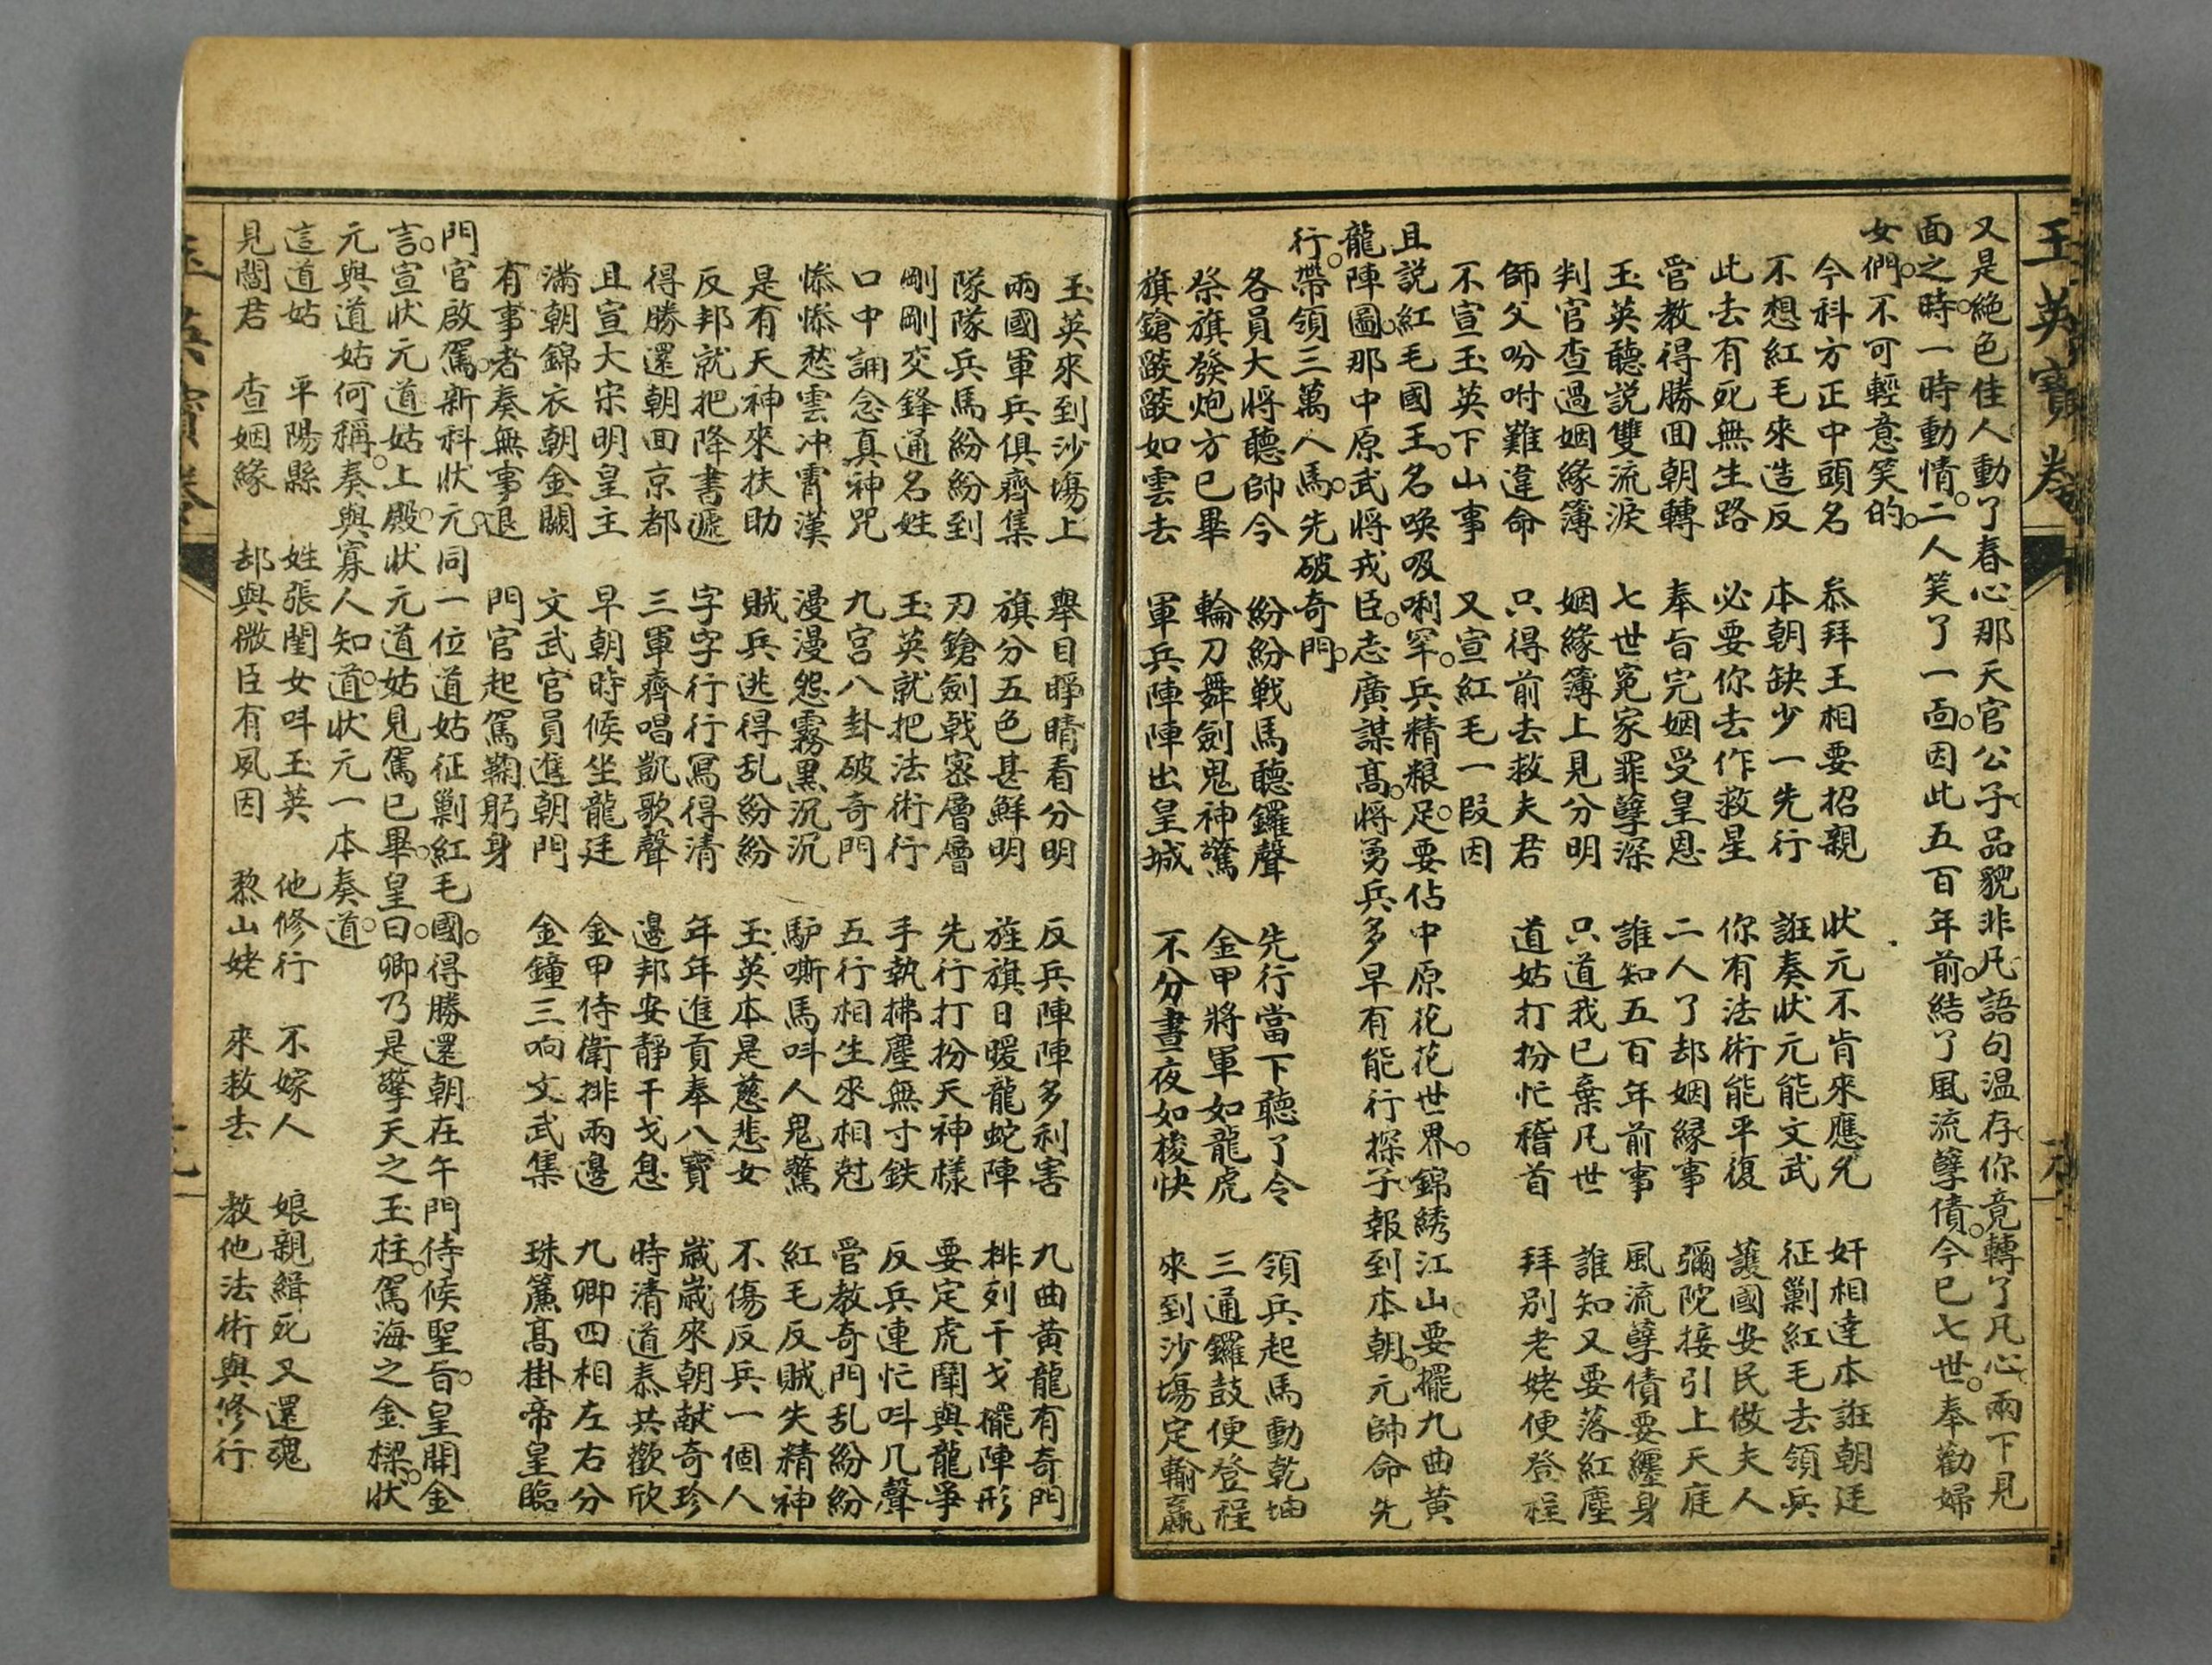 玉英寶卷
又是絕色佳人動了春心那天官公子品貌非凡語句温存你竟轉了凡心兩下見
面之時一時動情。二人笑了一面。因此五百年前。結了風流孽債。今已七世。奉勸婦
女們。不可輕意笑的。
今科方正中頭名　叅拜王相要招親　狀元不肯來應允　奸相達本誑朝廷
不想紅毛來造反　本朝缺少一先行　誑奏狀元能文武　征剿紅毛去領兵
此去有死無生路　必要你去作救星　你有法術能平復　護國安民做夫人
管教得勝回朝轉　奉旨完姻受皇恩　二人了却姻緣事　彌陀接引上天庭
玉英聽説雙流淚　七世冤家罪孽深　誰知五百年前事　風流孽債要纏身
判官查過姻緣簿　姻緣簿上見分明　只道我已棄凡世　誰知又要落紅塵
師父吩咐難違命　只得前去救夫君　道姑打扮忙稽首　拜别老姥便登程
不宣玉英下山事　又宣紅毛一段因
且説紅毛國王。名唤吸唎罕。兵精粮足。要佔中原花花世界。錦綉江山。要擺九曲黄
龍陣圖。那中原武将戎臣。志廣謀高。將勇兵多早有能行探子報到本朝。元帥命先
行。帶領三萬人馬。先破奇門。
各員大將聽帥令　紛紛戰馬聽鑼聲　先行當下聽了令　領兵起馬動乾坤
祭旗發炮方已畢　輪刀舞劍鬼神驚　金甲將軍如龍虎　三通鑼鼓便登程
旗鎗燄燄如雲去　軍兵陣陣出皇城　不分晝夜如梭快　來到沙塲定輸贏
玉英來到沙塲上　舉目睜睛看分明　反兵陣陣多利害　九曲黄龍有奇門
兩國軍兵俱齊集　旗分五色甚鮮明　旌旗日暖龍蛇陣　排列干戈擺陣形
隊隊兵馬紛紛到　刃鎗劍戟密層層　先行打扮天神樣　要定虎鬬與龍爭
剛剛交鋒通名姓　玉英就把法術行　手執拂塵無寸鉄　反兵連忙呌几聲
口中誦念真神咒　九宫八卦破奇門　五行相生來相尅　管教奇門乱紛紛
慘慘愁雲冲霄漢　漫漫怨霧黑沉沉　馿嘶馬呌人鬼驚　紅毛反賊失精神
是有天神來扶助　賊兵逃得乱紛紛　玉英本是慈悲女　不傷反兵一個人
反邦就把降書遞　字字行行寫得清　年年進貢奉八寶　歲歲來朝献奇珍
得勝還朝回京都　三軍齊唱凱歌聲　邊邦安靜干戈息　時清道泰共歡欣
且宣大宋明皇主　早朝時候坐龍廷　金甲侍衛排兩邊　九卿四相左右分
滿朝錦衣朝金闕　文武官員進朝門　金鐘三响文武集　珠簾高掛帝皇臨
有事者奏無事退　門官起駕鞠躬身
門官啟駕。新科狀元。同一位道姑征剿紅毛國。得勝還朝在午門侍候聖旨。皇開金
言。宣状元道姑上殿。状元道姑見駕已畢。皇曰。卿乃是擎天之玉柱。駕海之金樑。状
元與道姑何稱。奏與寡人知道。状元一本奏道。
這道姑　平陽縣　姓張閨女呌玉英　他修行　不嫁人　娘親緝死又還魂
見閻君　查姻緣　却與微臣有夙因　黎山姥　來救去　教他法術與修行